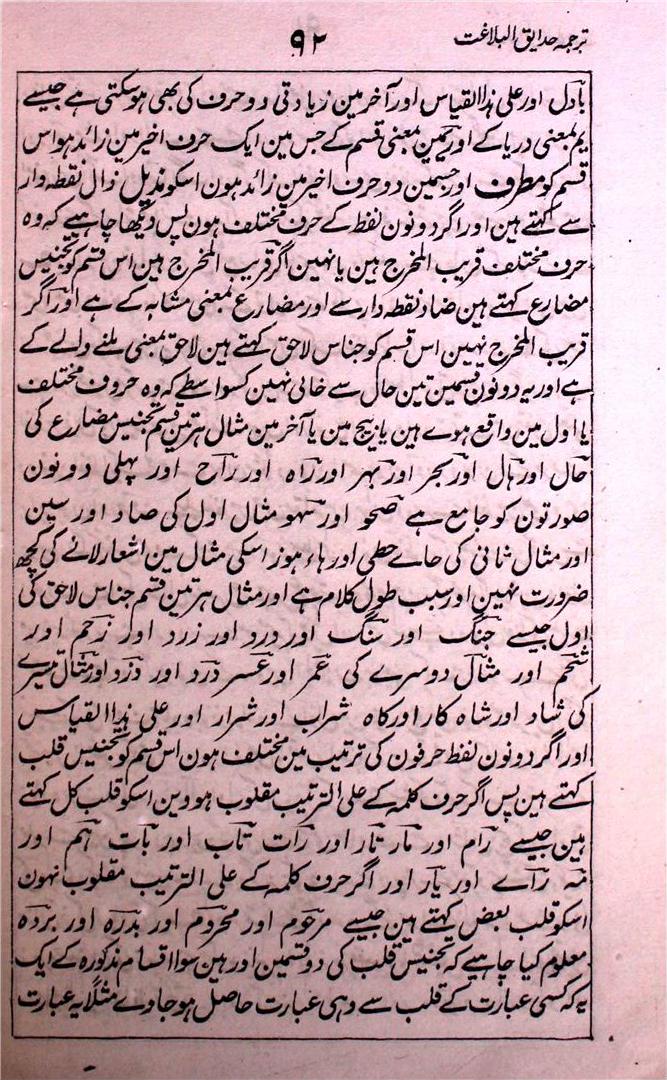 ترجمہ حدایق البلاغت
۹۲
بادل اور علی ہذا القیاس اور آخر مین زیادتی دو حرف کی بھی ہو سکتی ہے جیسے
یم بمعنی دریا کے اور یمین بمعنی قسم کے جس مین ایک حرف اخیر مین زائد ہو اس
قسم کو مطرف اور جسمین دو حرف اخیر مین زائد ہون اسکو مذیل ذال نقطہ دار
سے کہتے ہین اور اگر دونون لفظ کے حرف مختلف ہون پس دیکھا چاہیے کہ وہ
حرف مختلف قریب المخرج ہین یا نہین اگر قریب المخرج ہین اس قسم کو تجنیس
مضارع کہتے ہین ضاد نقطہ دار سے اور مضارع بمعنی مشابہ کے ہے اور اگر
قریب المخرج نہین اس قسم کو جناس لاحق کہتے ہین لاحق بمعنی ملنے والے کے
ہے اور یہ دونون قسمین تین حال سے خالی نہین کسواسطے کہ وہ حروف مختلف
یا اول مین واقع ہوے ہین یا بیچ مین یا آخر مین مثال ہر تین قسم تجنیس مضارع کی
حال اور ہال اور بحر اور بہر اور راہ اور راح اور پہلی دونون
صورتون کو جامع ہے صحو اور سہو مثال اول کی صاد اور سین
اور مثال ثانی کی حاے حطی اور ہاء ہوز اسکی مثال مین اشعار لانے کی کچھ
ضرورت نہین اور سبب طول کلام ہے اور مثال ہر تین قسم جناس لاحق کی
اول جیسے جنگ اور سنگ اور درد اور زرد اور زحم اور
شحم اور مثال دوسرے کی عمر اور عسر درد اور دزد اور مثال تیسرے
کی شاد اور شاہ کار اور کاہ شراب اور شرار اور علی ہذا القیاس
اور اگر دونون لفظ حرفون کی ترتیب مین مختلف ہون اس قسم کو تجنیس قلب
کہتے ہین پس اگر حرف کلمہ کے علی الترتیب مقلوب ہووین اسکو قلب کل کہتے
ہین جیسے رام اور مار تار اور رات تاب اور بات ہم اور
مہ راے اور یار اور اگر حرف کلمہ کے علی الترتیب مقلوب نہون
اسکو قلب بعض کہتے ہین جیسے مرحوم اور محروم اور بدرہ اور بردہ
معلوم کیا چاہیے کہ تجنیس قلب کی دو قسمین اور ہین سوا اقسام مذکورہ کے ایک
یہ کہ کسی عبارت کے قلب سے وہی عبارت حاصل ہو جاوے مثلاً یہ عبارت